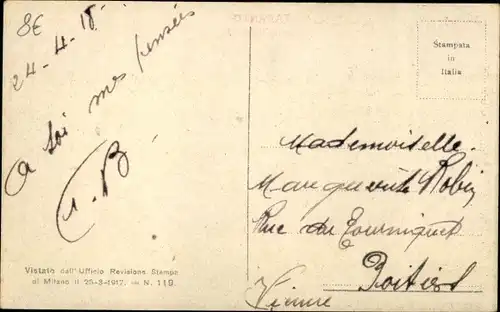 8€
24-4-18.
A toi mes pensées
Stampata
in
Italia
Mademoiselle.
Marguerite Robin
Rue du Tourniquet
Poitiers
Vienne
Vistato dall'Ufficio Revisione Stampa
di Milano il 25-3-1917. — N. 119.